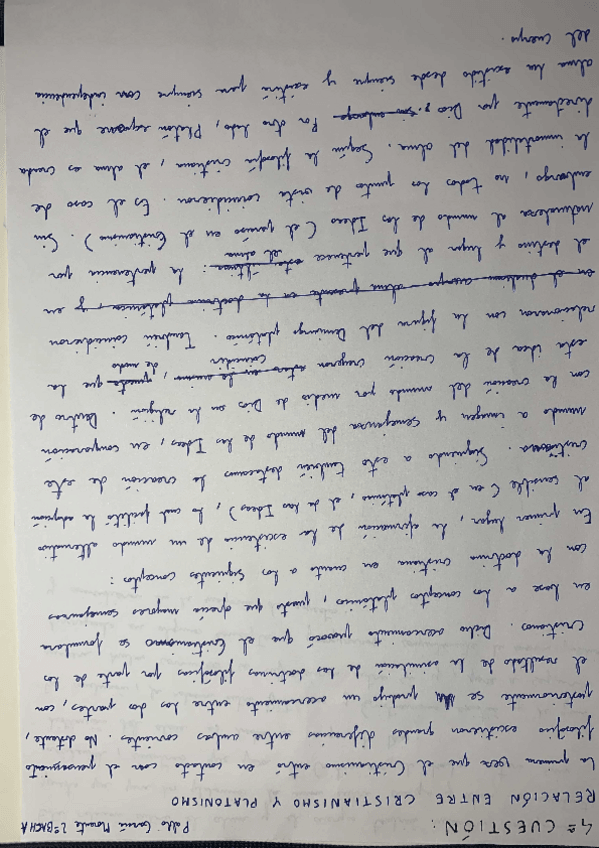 4ª CUESTIÓN: Pablo García Morante 2º BACH A
RELACIÓN ENTRE CRISTIANISMO Y PLATONISMO
La primera vez que el Cristianismo entró en contacto con el pensamiento
filosófico existieron grandes diferencias entre ambas corrientes. No obstante,
posteriormente se produjo un acercamiento entre las dos partes, con
el resultado de la asimilación de las doctrinas filosóficas por parte de los
Cristianos. Dicho acercamiento provocó que el Cristianismo se formulara
en base a los conceptos platónicos, puesto que ofrecía mayores semejanzas
con la doctrina cristiana en cuanto a los siguientes conceptos:
En primer lugar, la afirmación de la existencia de un mundo alternativo
al sensible (en el caso platónico, el de las Ideas), lo cual facilitó la adopción
cristiana. Siguiendo a esto también destacamos la creación de este
mundo a imagen y semejanza del mundo de las Ideas, en comparación
con la creación del mundo por medio de Dios en la religión. Dentro de
esta idea de la creación creyeron coincidir, de modo que la
relacionaron con la figura del Demiurgo platónico. También coincidieron
en el dualismo cuerpo-alma presente en la doctrina platónica, y en
el destino y lugar al que pertenece el alma: la pertenencia por
naturaleza al mundo de las Ideas (el paraíso en el Cristianismo). Sin
embargo, no todos los puntos de vista coincidieron. Es el caso de
la inmortalidad del alma. Según la filosofía cristiana, el alma es creada
directamente por Dios, sin embargo Por otro lado, Platón expone que el
alma ha existido desde siempre y existirá para siempre con independencia
del cuerpo.